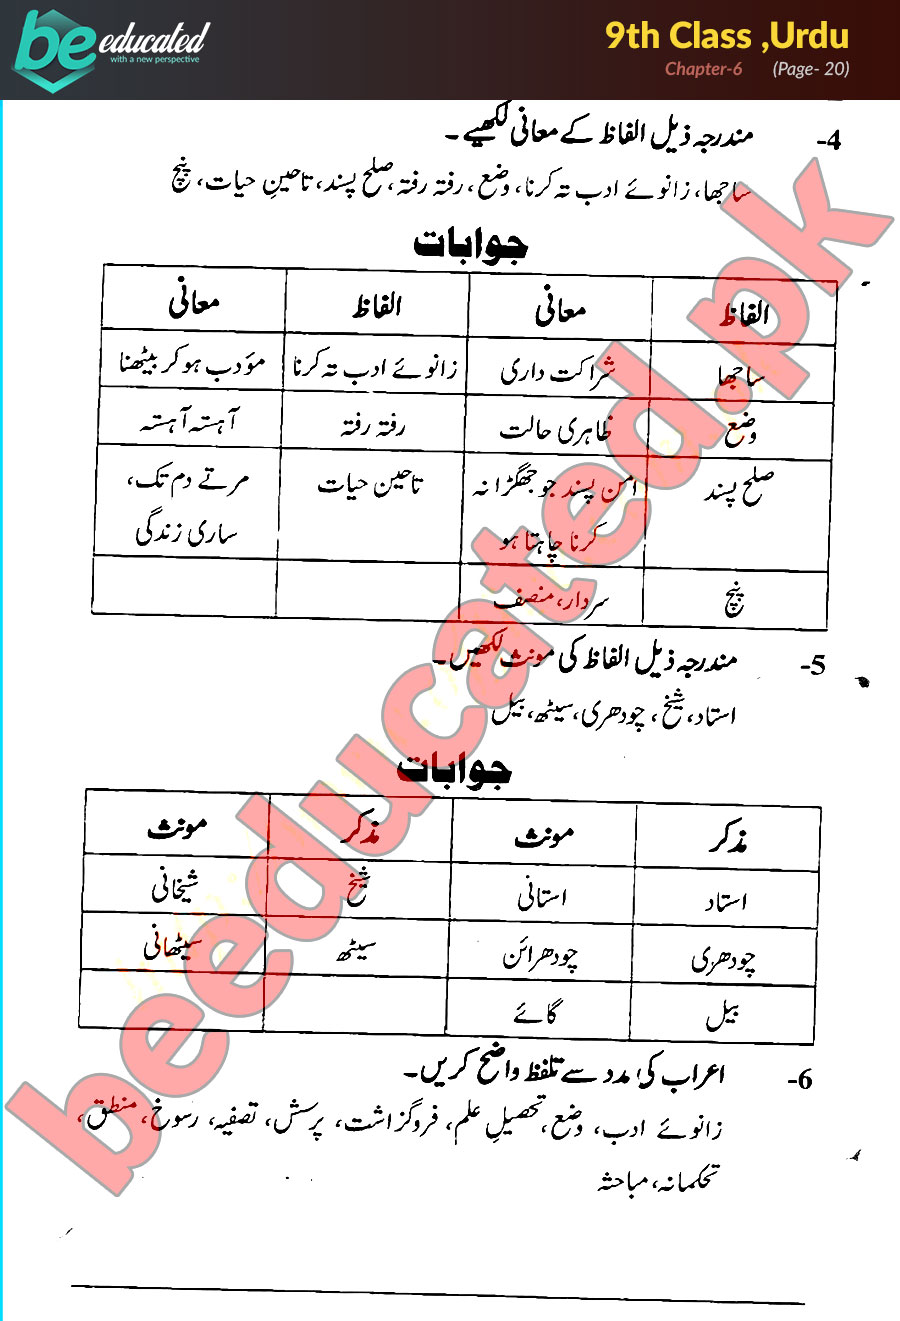 be educated
with a new perspective
9th Class ,Urdu
Chapter-6 (Page- 20)
4- مندرجہ ذیل الفاظ کے معانی لکھیے۔
ساجھا، زانوئے ادب تہ کرنا، وضع، رفتہ رفتہ، صلح پسند، تاحینِ حیات، پنچ
جوابات
الفاظ معانی الفاظ معانی
ساجھا شراکت داری زانوئے ادب تہ کرنا مؤدب ہو کر بیٹھنا
وضع ظاہری حالت رفتہ رفتہ آہستہ آہستہ
صلح پسند امن پسند جو جھگڑا نہ تاحین حیات مرتے دم تک،
کرنا چاہتا ہو ساری زندگی
پنچ سردار، منصف
5- مندرجہ ذیل الفاظ کی مونث لکھیں۔
استاد، شیخ، چودھری، سیٹھ، بیل
جوابات
مذکر مونث مذکر مونث
استاد استانی شیخ شیخانی
چودھری چودھرائن سیٹھ سیٹھانی
بیل گائے
6- اعراب کی مدد سے تلفظ واضح کریں۔
زانوئے ادب، وضع، تحصیلِ علم، فروگزاشت، پرسش، تصفیہ، رسوخ، منطق،
تحکمانہ، مباحثہ
beeducated.pk